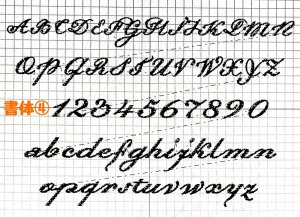 ABCDEFGHIJKLMN
OPQRSTUVWXYZ
書体④ 1234567890
abcdefghijklmn
opqrstuvwxyz